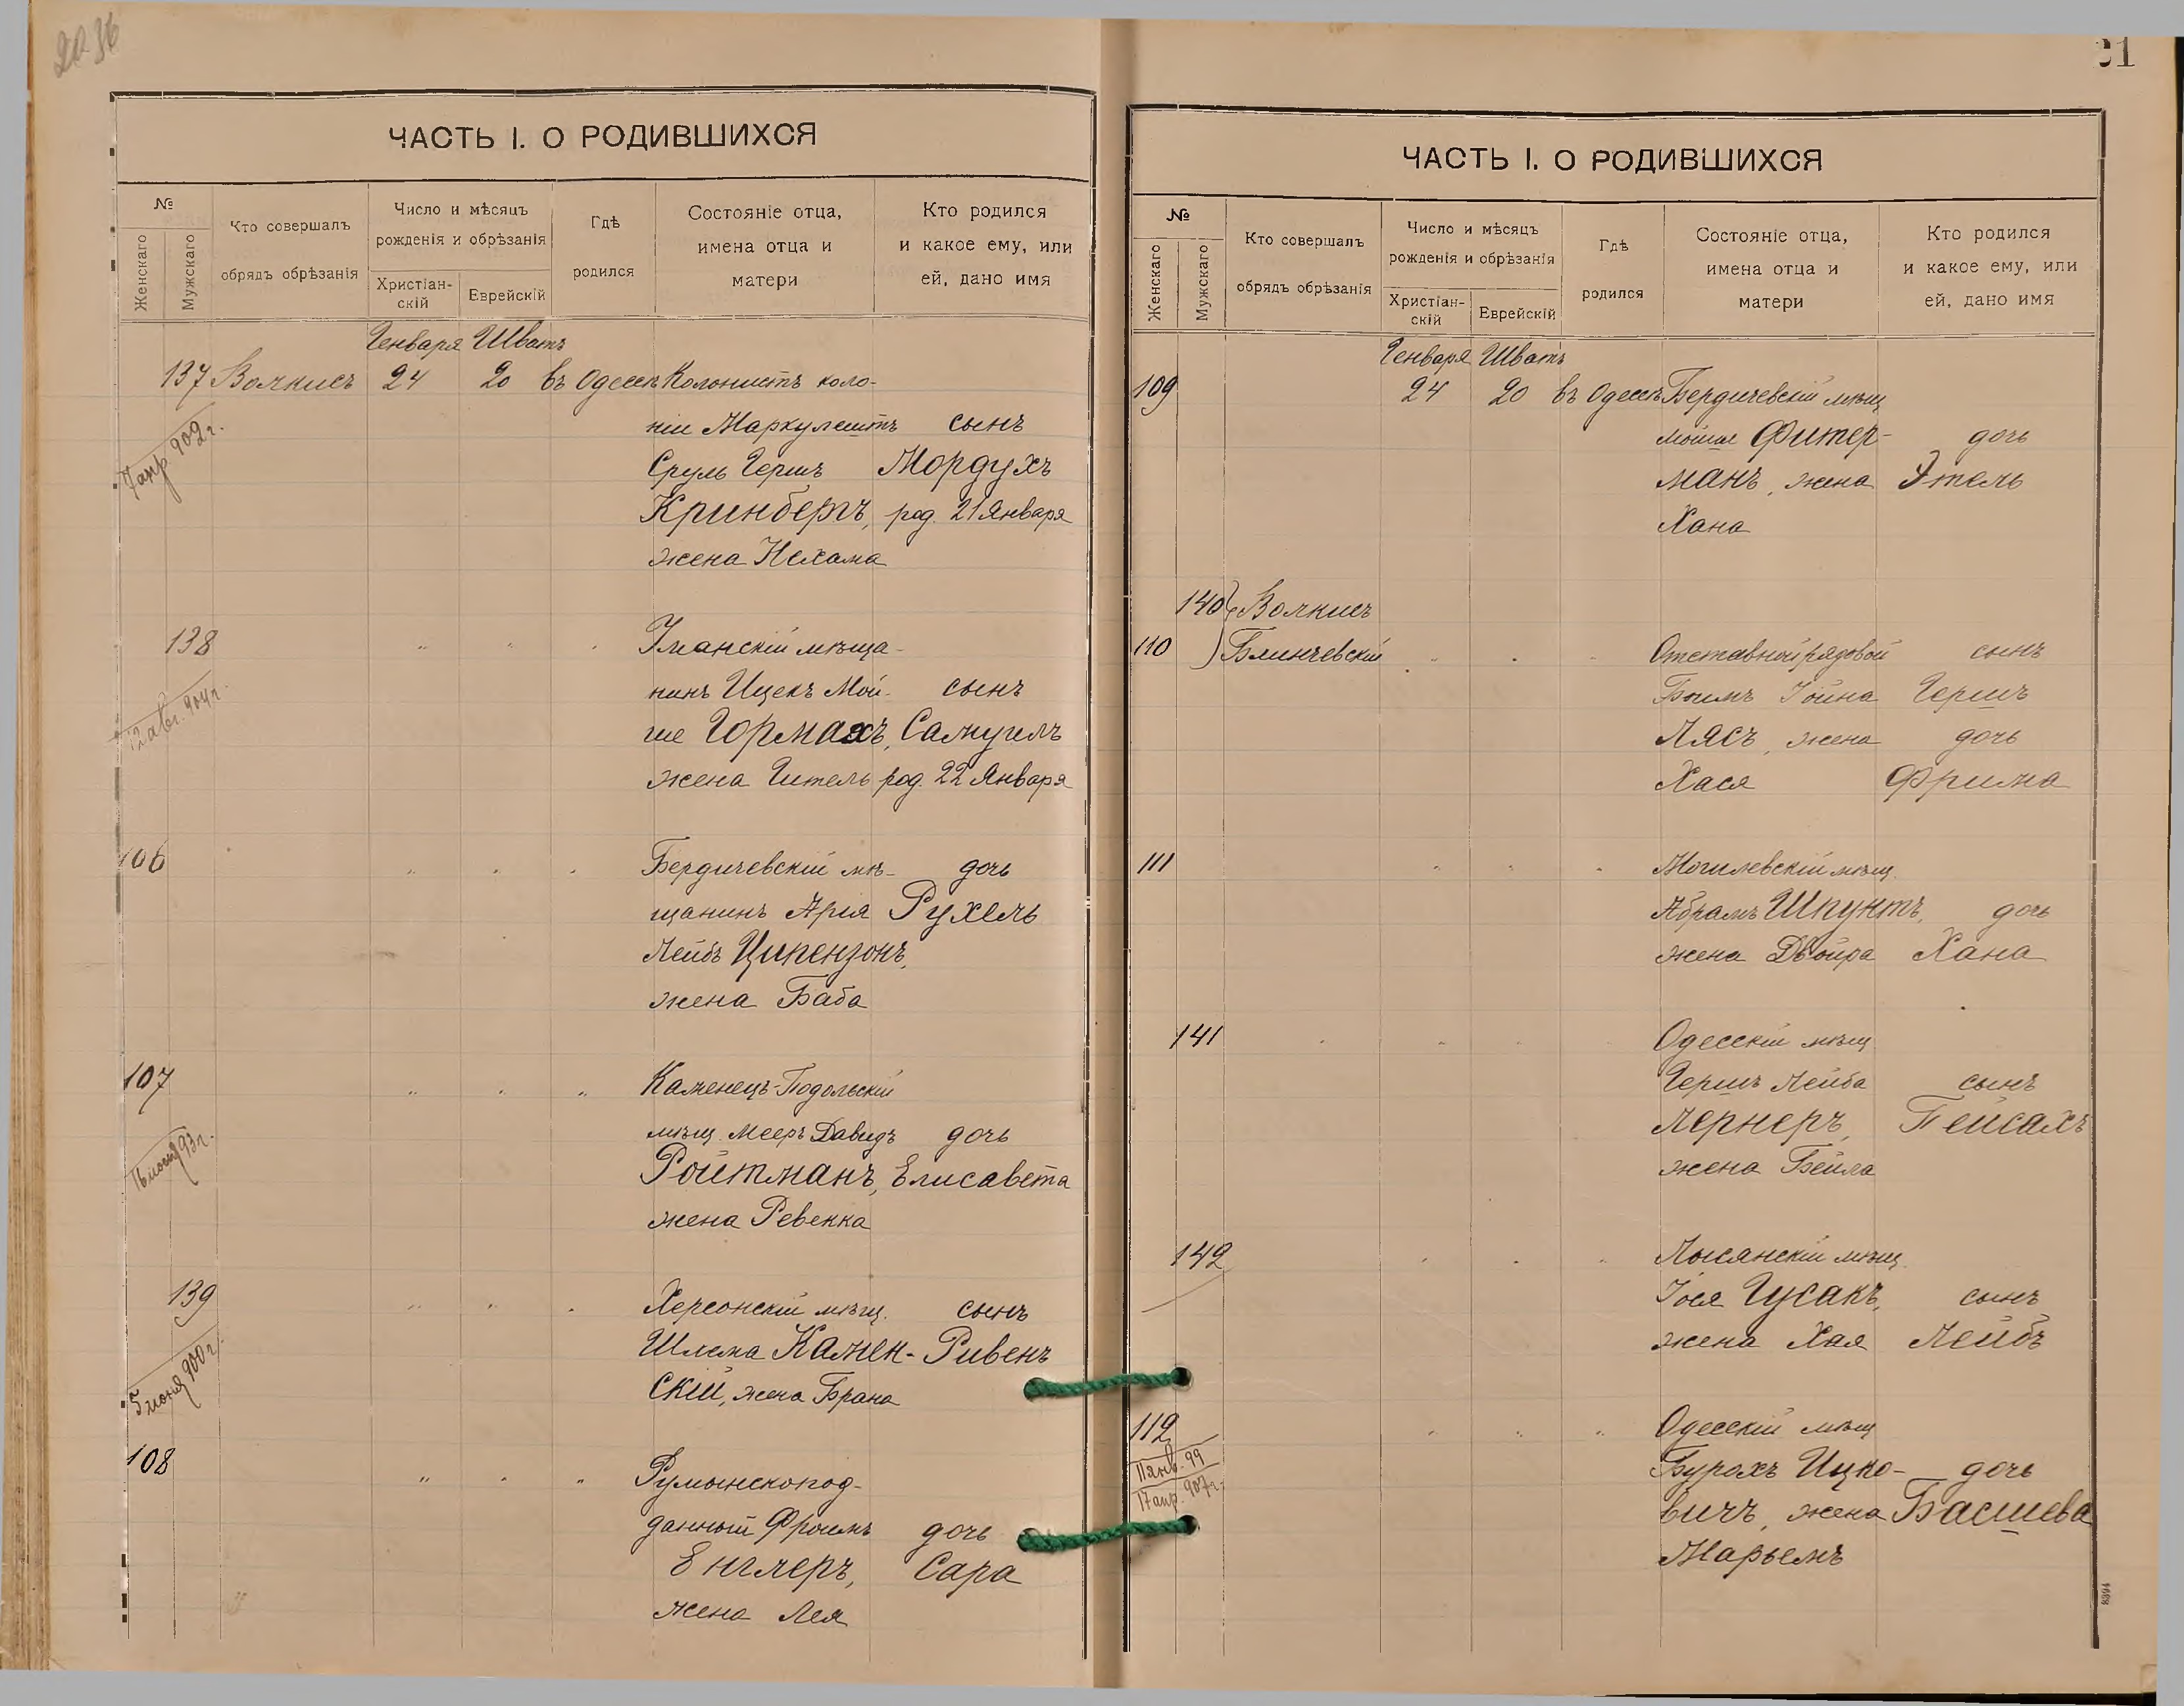 2036
ЧАСТЬ I. О РОДИВШИХСЯ
№
Женскаго
Мужскаго
Кто совершалъ
обрядъ обрѣзанія
Число и мѣсяцъ
рожденія и обрѣзанія
Христіан-
скій
Еврейскій
Гдѣ
родился
Состояніе отца,
имена отца и
матери
Кто родился
и какое ему, или
ей, дано имя
Генваря Шватъ
137 Волкисъ 24 20 въ Одессѣ Колонистъ коло-
ніи Маркулештъ сынъ
7 апр. 902 г.
Сруль Гершъ Мордухъ
Кринбергъ, род. 21 Января
жена Нехама
138 " " " Уманскій мѣща-
нинъ Ицекъ Мой- сынъ
12 авг. 904 г.
ше Гормахъ, Самуилъ
жена Гитель род. 22 Января
106 " " " Бердичевскій мѣ- дочь
щанинъ Арія Рухель
Лейбъ Ципензонъ,
жена Баба
107 " " " Каменецъ-Подольскій
мѣщ. Мееръ Давидъ дочь
Ройтманъ, Елисавета
жена Ревекка
139 " " " Херсонскій мѣщ. сынъ
Шлема Камен- Ривенъ
5 іюня 900 г.
скій, жена Брана
108 " " " Румынскопод-
данный Фроимъ дочь
Енглеръ, Сара
жена Лея
21
ЧАСТЬ I. О РОДИВШИХСЯ
№
Женскаго
Мужскаго
Кто совершалъ
обрядъ обрѣзанія
Число и мѣсяцъ
рожденія и обрѣзанія
Христіан-
скій
Еврейскій
Гдѣ
родился
Состояніе отца,
имена отца и
матери
Кто родился
и какое ему, или
ей, дано имя
Генваря Шватъ
109 24 20 въ Одессѣ Бердичевскій мѣщ
Мойше Фитер- дочь
манъ, жена Этель
Хана
140 Волкисъ
110 Блинчевскій " " Отставной рядовой сынъ
Гершъ
Лясъ, жена дочь
Хася Фрима
111 " " " Могилевскій мѣщ.
Абрамъ Шпунтъ, дочь
жена Двойра Хана
141 " " " Одесскій мѣщ
Гершъ Лейба сынъ
Лернеръ, Пейсахъ
жена Бейла
142 " " " Лысянскій мѣщ.
Іося Гусакъ, сынъ
жена Хая Лейбъ
112 " " " Одесскій мѣщ
11 янв. 99
17 апр. 907 г.
Бурохъ Ицко- дочь
вичъ, жена Басшева
Марьемъ
8394